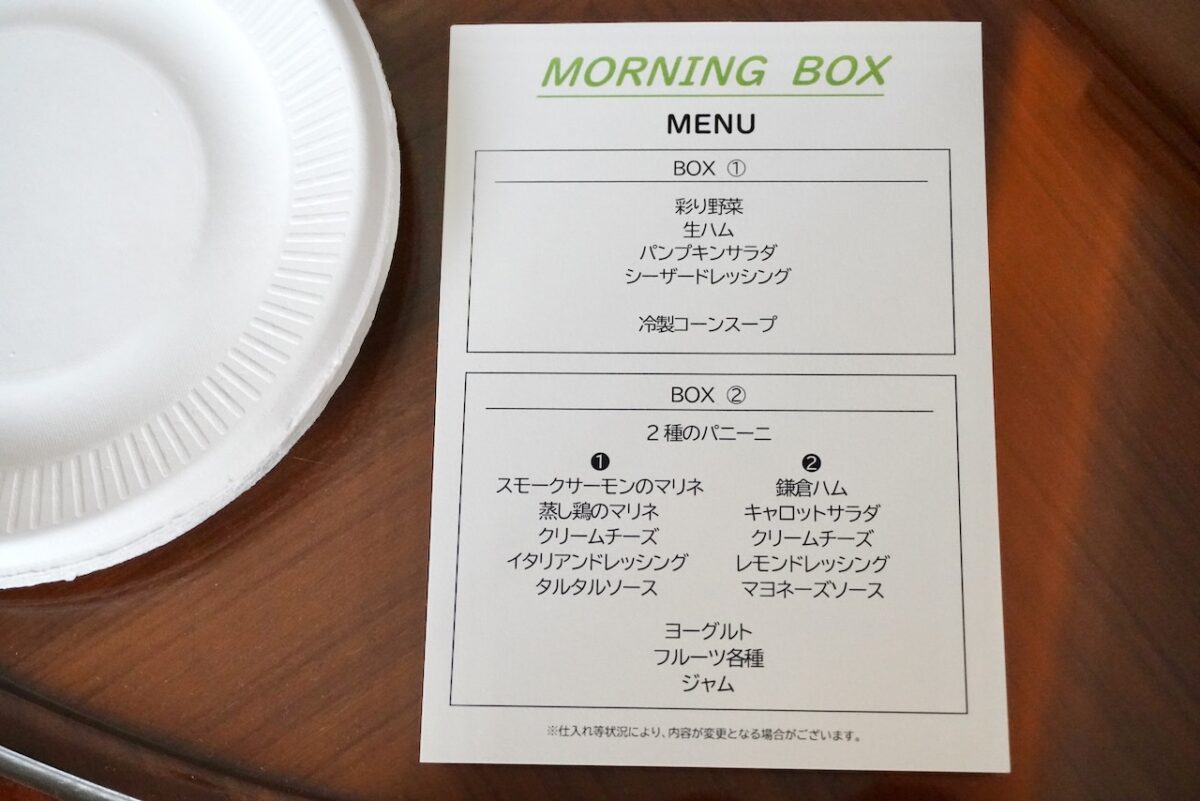 MORNING BOX
MENU
BOX ①
彩り野菜
生ハム
パンプキンサラダ
シーザードレッシング
冷製コーンスープ
BOX ②
2種のパニーニ
❶
スモークサーモンのマリネ
蒸し鶏のマリネ
クリームチーズ
イタリアンドレッシング
タルタルソース
❷
鎌倉ハム
キャロットサラダ
クリームチーズ
レモンドレッシング
マヨネーズソース
ヨーグルト
フルーツ各種
ジャム
※仕入れ等状況により、内容が変更となる場合がございます。